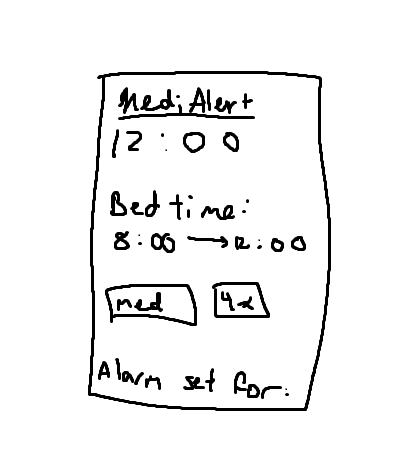 MediAlert
12:00
Bedtime:
8:00 → 12:00
med 4x
Alarm set for: